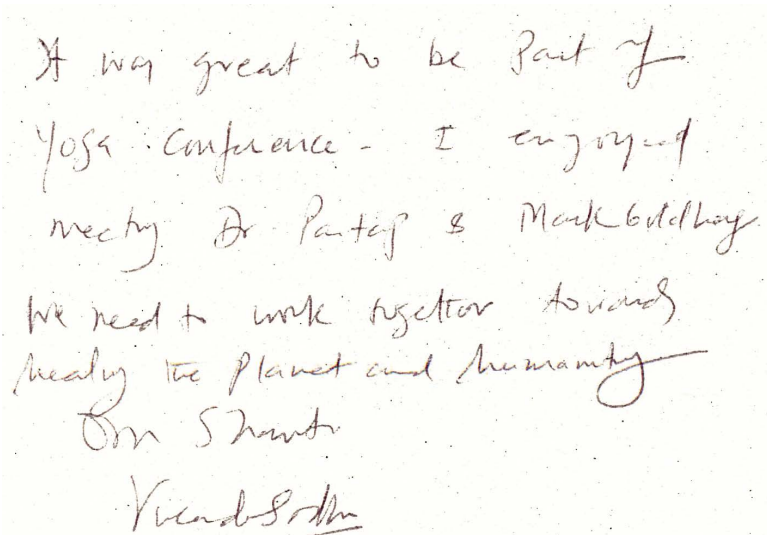 It was great to be Part of
Yoga Conference - I enjoyed
meeting Dr Partap & Mark Goldberg
We need to work together towards
healing the Planet and humanity
Om Shanti